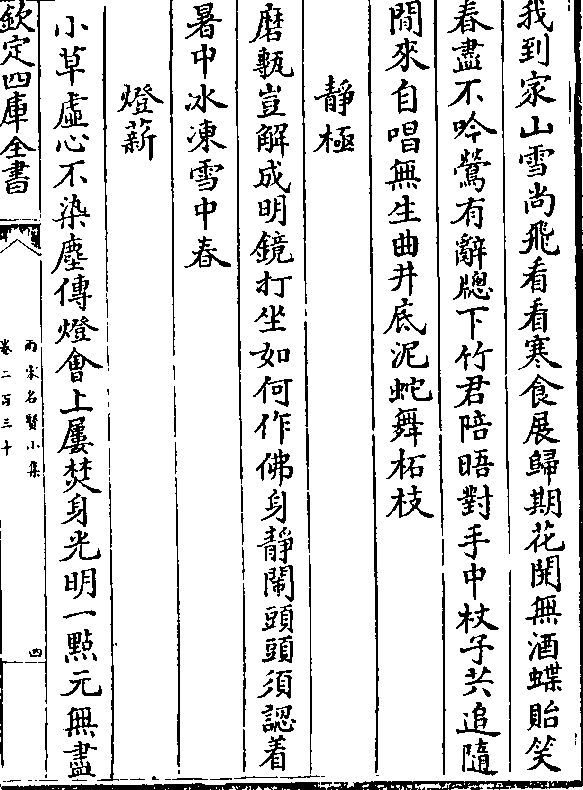 我到家山雪尚飛看看寒食展歸期花開無酒蝶貽笑
春盡不吟鶯有辭牕下竹君陪晤對手中杖子共追隨
閒來自唱無生曲井底泥蛇舞柘枝
靜極
磨甎豈解成明鏡打坐如何作佛身靜閙頭頭須認着
暑中冰凍雪中春
燈薪
小草虛心不染塵傳燈會上屢焚身光明一點元無盡
欽定四庫全書
兩宋名賢小集
卷二百三十
四